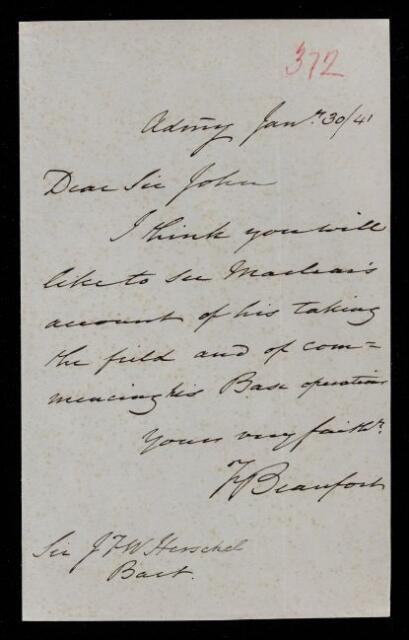 372
Admty Jany. 30/41
Dear Sir John
I think you will
like to see Maclear's
account of his taking
the field and of com=
mencing his Base operations
Yours very faithy.
F Beaufort
Sir J F W Herschel
Bart.